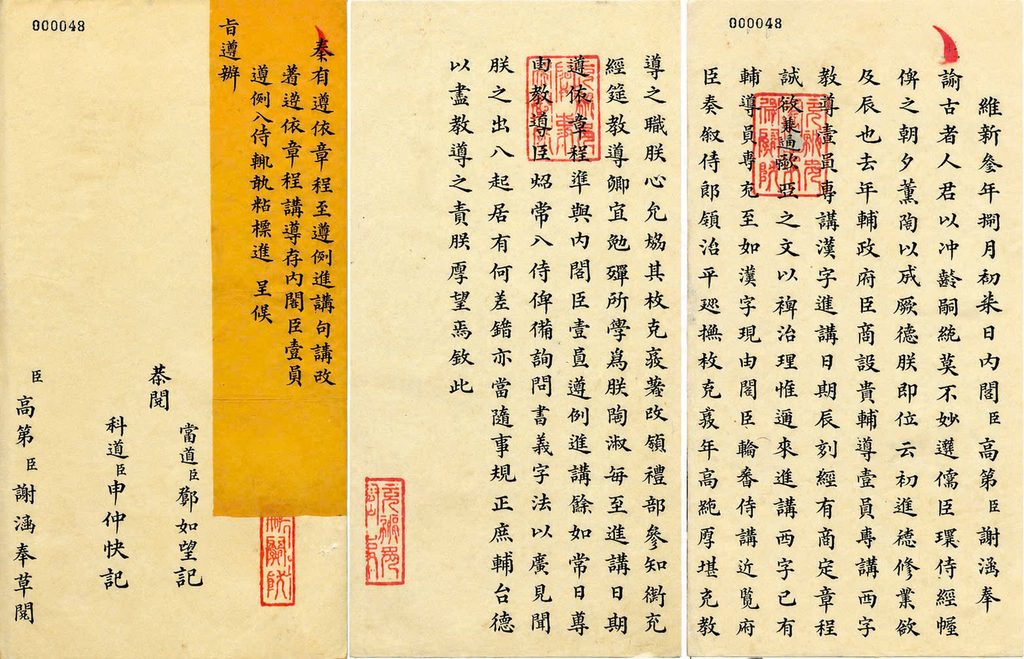 000048
維新參年捌月初柒日內閣臣高第臣謝涵奉
諭古者人君以冲齡嗣統莫不妙選儒臣環侍經幄
俾之朝夕薰陶以成厥德朕即位云初進德修業欲
及辰也去年輔政府臣商設貴輔導壹員專講西字
教導壹員專講漢字進講日期辰刻經有商定章程
誠欲兼通歐亞之文以裨治理惟邇來進講西字已有
輔導員專充至如漢字現由閣臣輪番侍講近覽府
臣奏叙侍郎領治平廵撫枚克衮年高純厚堪充教
導之職朕心允協其枚克衮著改領禮部參知衘充
經筵教導卿宜勉殫所學爲朕陶淑每至進講日期
遵依章程準與內閣臣壹員遵例進講餘如常日專
由教導臣炤常入侍俾備詢問書義字法以廣見聞
朕之出入起居有何差錯亦當隨事規正庶輔台德
以盡教導之責朕厚望焉欽此
000048
奏有遵依章程至遵例進講句講改
著遵依章程講導存內閣臣壹員
遵例入侍輒敢粘標進 呈候
旨遵辦
當道臣鄧如望記
恭閱
科道臣申仲快記
臣高第臣謝涵奉草閱